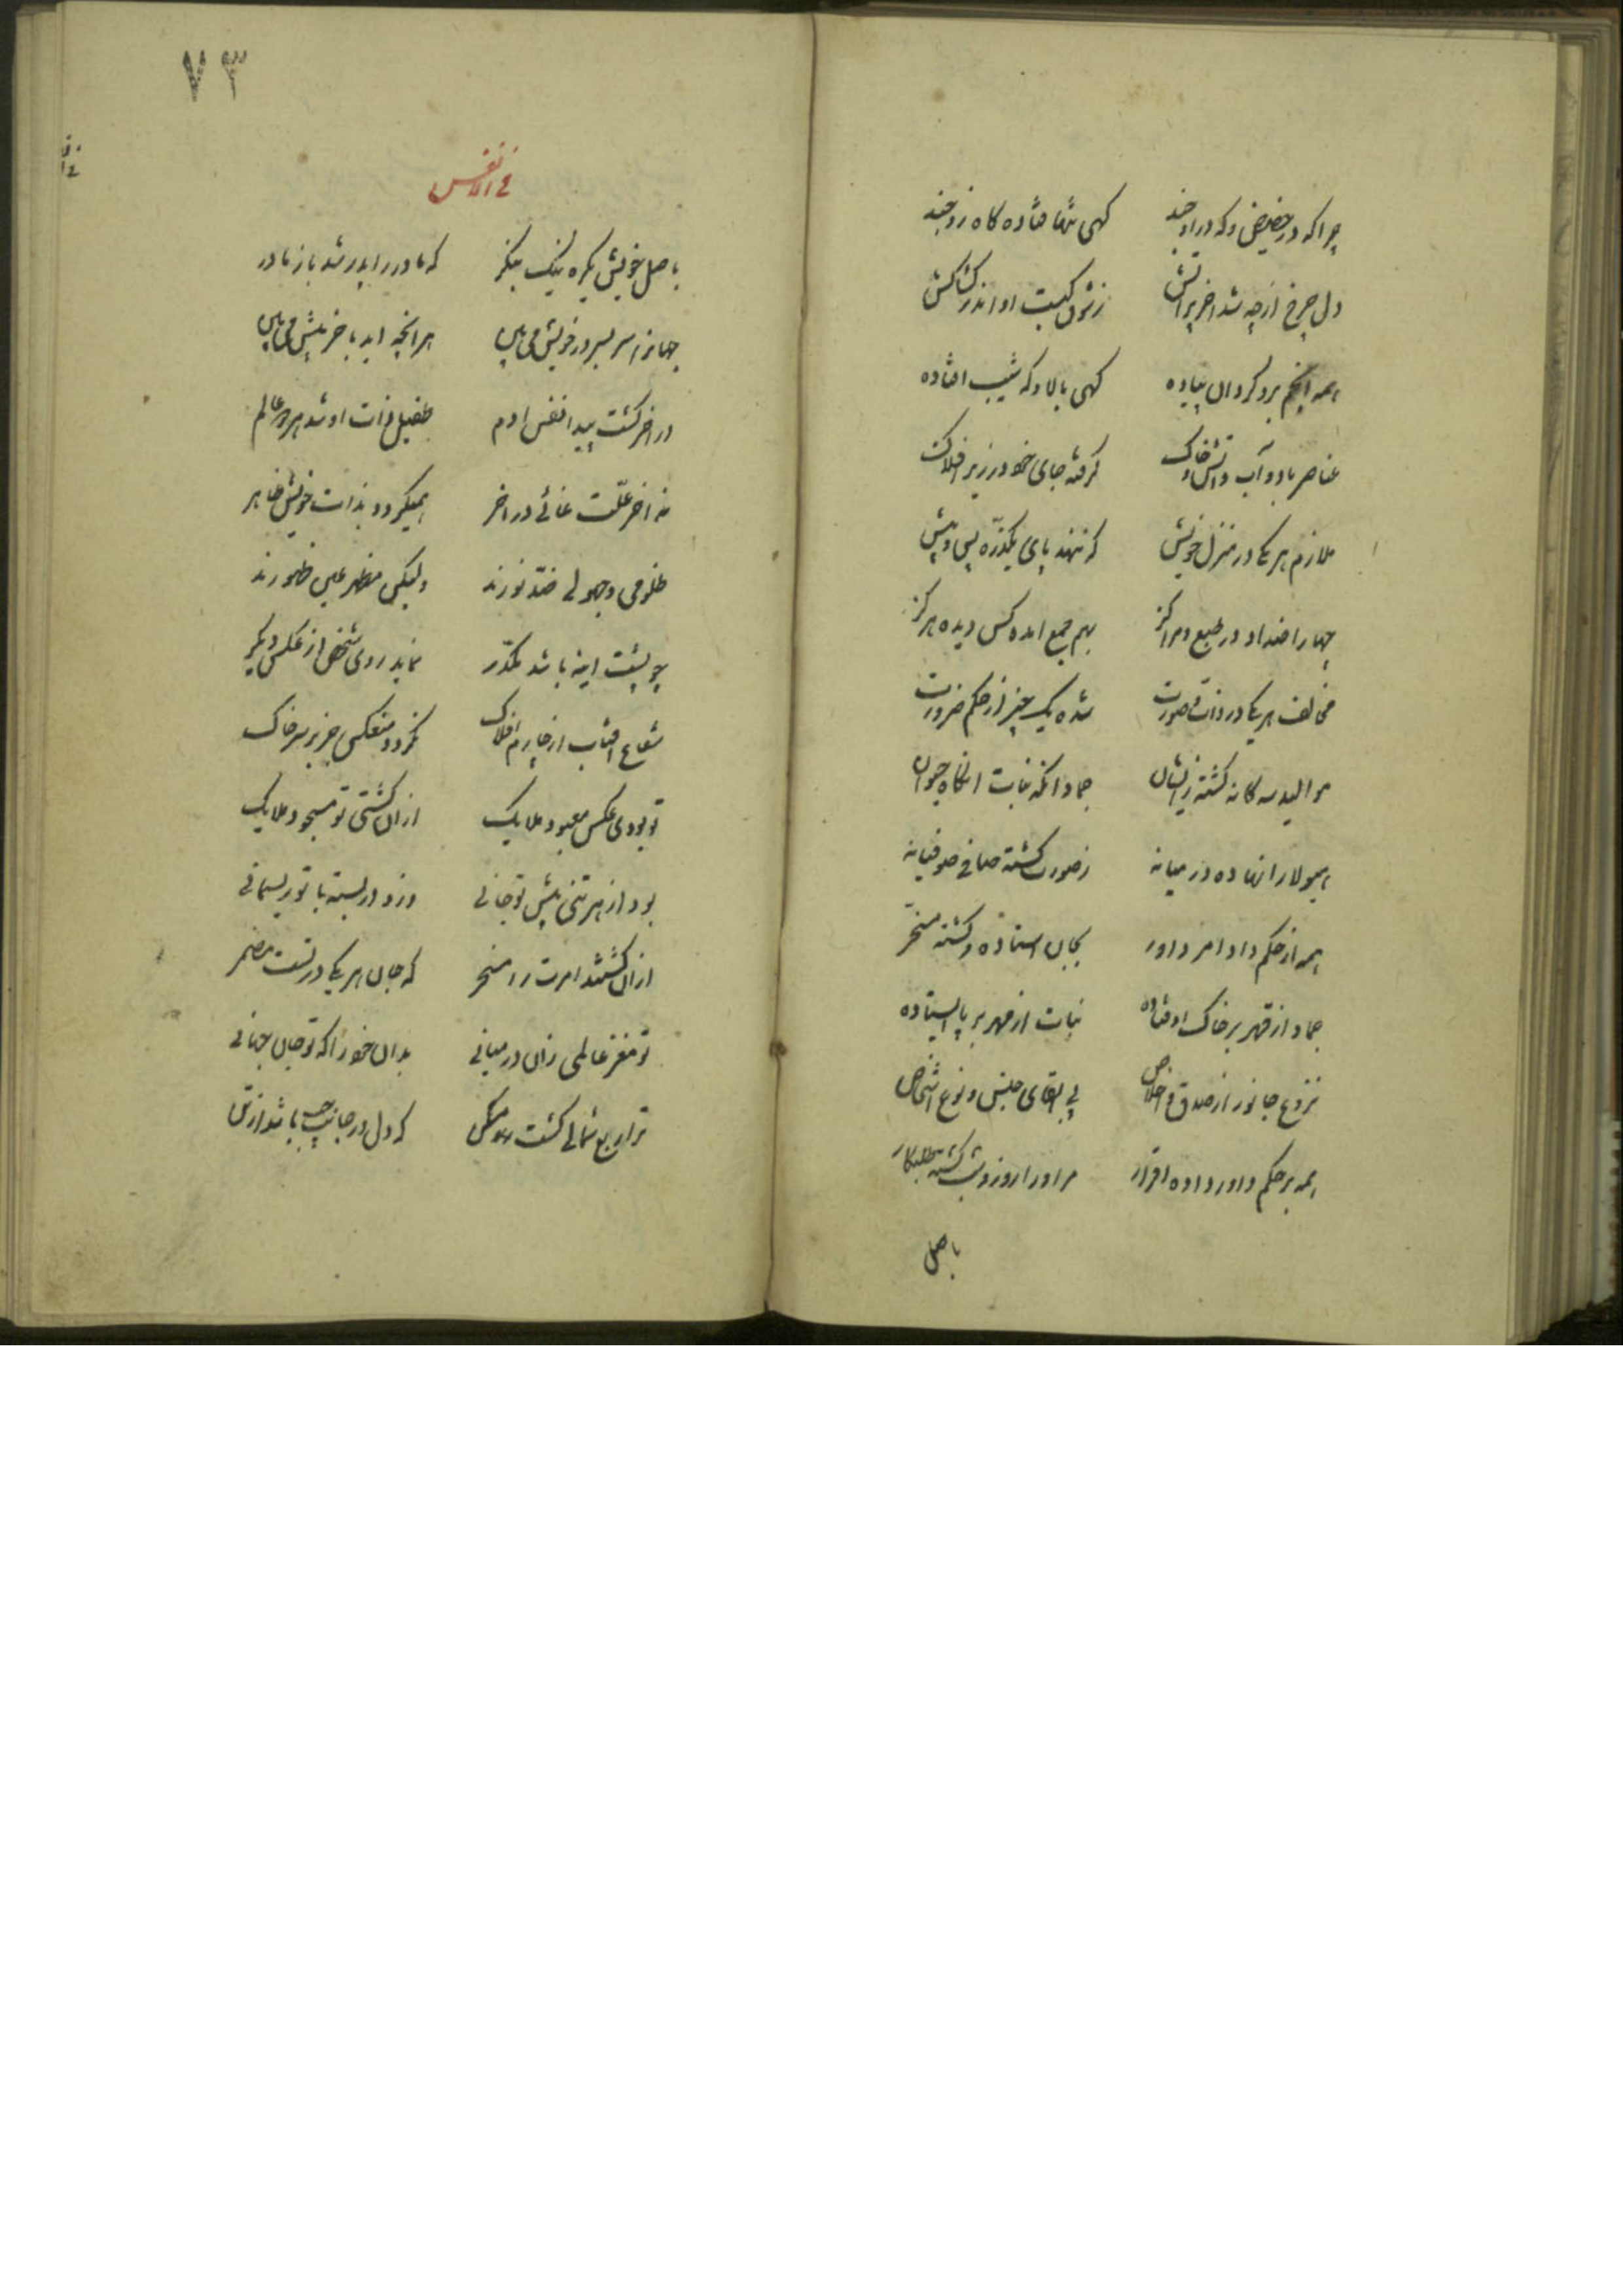 چرا که در حضیض و که در اوجند کهی تنها فتاده کاه زوجند
دل چرخ از چه شد اخر پر اتش ز شوق کیست او اندر کشاکش
همه انجم برو کردان پیاده کهی بالا و که شیب افتاده
عناصر باد و آب و اتش و خاک کرفته جای خود در زیر افلاک
ملازم هر یکی در منزل خویش که ننهد پای یکذره پس و پیش
چهار اضداد در طبع و مراکز بهم جمع امده کس دیده هرکز
مخالف هر یکی در ذات و صورت شده یک چیز از حکم ضرورت
موالید سه کانه کشته زایشان جماد انکه نبات انکاه حیوان
هیولا را نهاده در میانه ز صورت کشته صافی صوفیانه
همه از حکم داد امر داور بجان استاده و کشته مسخّر
جماد از قهر بر خاک اوفتاده نبات از مهر بر پا ایستاده
نزوع جانور از صدق و اخلاص پی ابقای جنس و نوع اشخاص
همه بر حکم داور داده اقرار مر او را روز و شب کشته طلبکار
باصل
۷۳
فی الانفس
باصل خویش یکره نیک بنکر که مادر را پدر شد باز مادر
جهانرا سر بسر در خویش می بین هر انچه اید باخر پیش می بین
در اخر کشت پیدا نفس ادم طفیل ذات او شد هر دو عالم
نه اخر علّت غائی در اخر همیکردد بذات خویش ظاهر
ظلومی و جهولی ضدّ نورند ولیکن مظهر عین ظهورند
چو پشت اینه باشد مکدّر نماید روی شخص از عکس دیکر
شعاع افتاب از چارم افلاک نکردد منعکس جز بر سر خاک
تو بودی عکس معبود ملایک ازان کشتی تو مسجود ملایک
بود از هر تنی پیش تو جانی وزو در بسته با تو ریسمانی
ازان کشتند امرت را مسخر که جان هر یکی در تست مضمر
تو مغز عالمی زان در میانی بدان خود را که تو جان جهانی
ترا ربع شمالی کشت مسکن که دل در جانب چپ باشد از تن